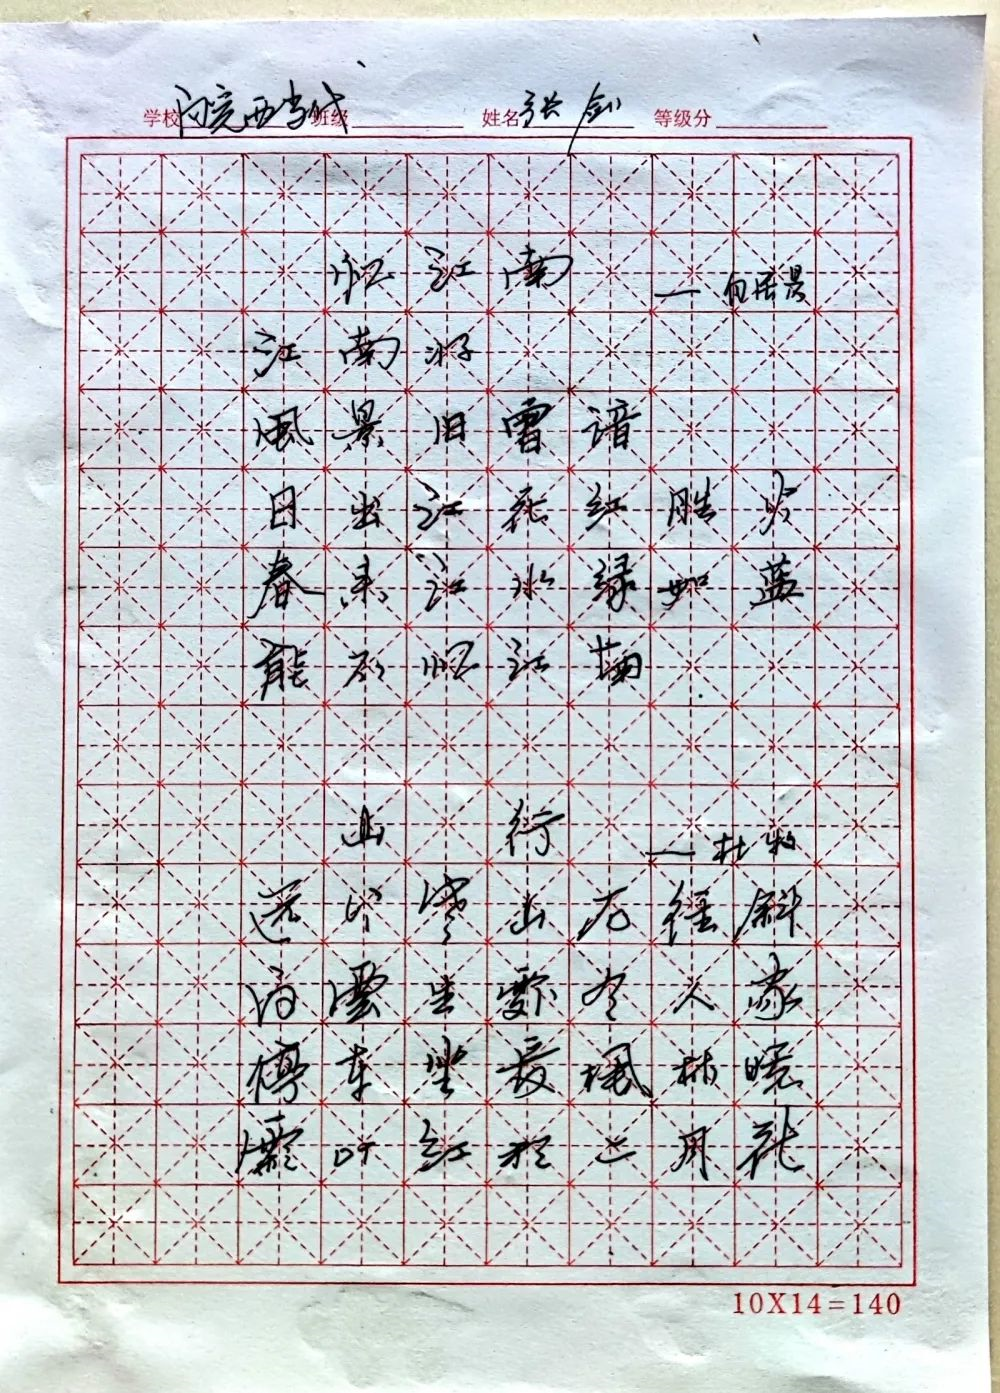 学校 班级 姓名 张剑 等级分
忆江南
——白居易
江南好
風景旧曾谙
日出江花红胜火
春来江水绿如蓝
能不忆江南
山行
——杜牧
远上寒山石径斜
白雲生处有人家
停车坐爱楓林晚
霜叶红於二月花
10X14=140